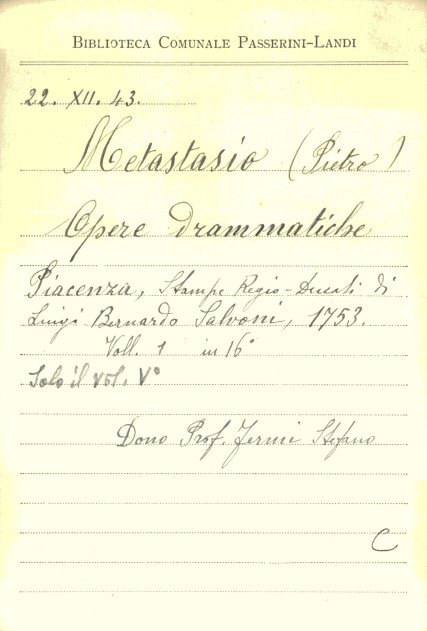 BIBLIOTECA COMUNALE PASSERINI-LANDI
22. XII. 43.
Metastasio (Pietro)
Opere drammatiche
Piacenza, Stampe Regio-Ducali di
Luigi Bernardo Salvoni, 1753.
Voll. 1 in 16°
Solo il vol. V°
Dono Prof. Fermi Stefano
C